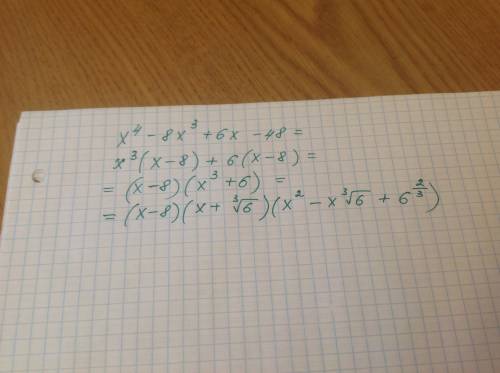 x⁴ - 8x³ + 6x - 48 =
x³(x-8) + 6(x-8) =
= (x-8)(x³+6) =
= (x-8)(x+ ∛6)(x² - x∛6 + 6^(2/3))